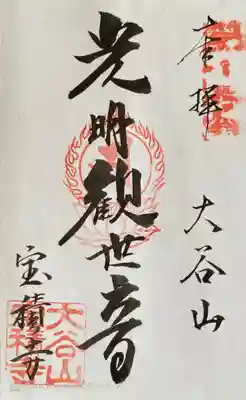 奉拝
大谷山
光明観世音
宝積寺
大谷山